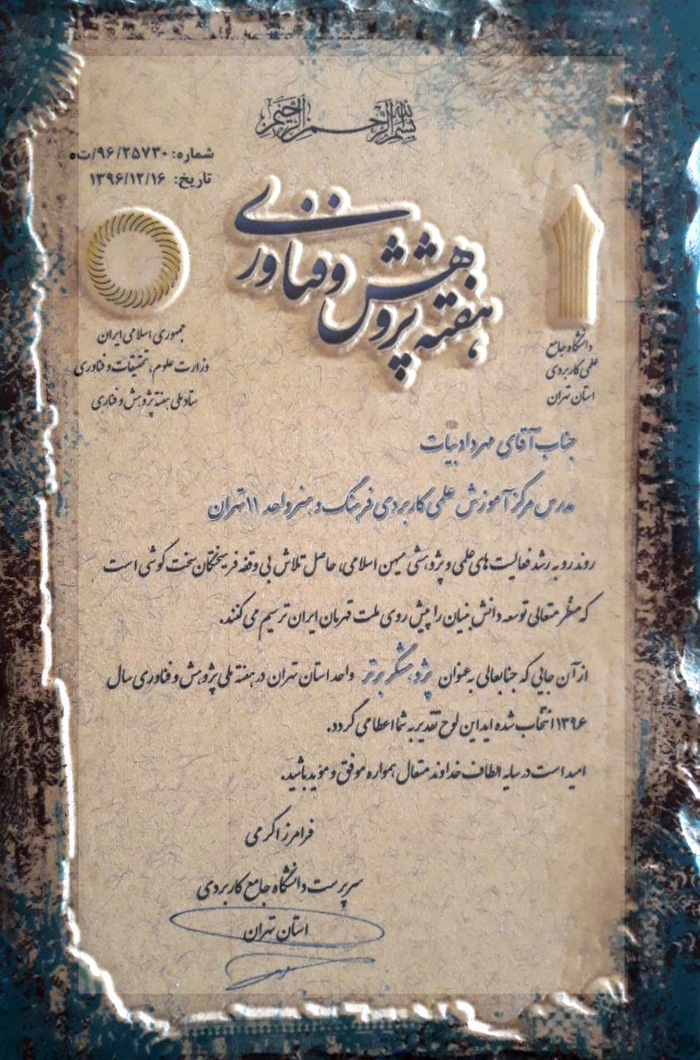 بسم الله الرحمن الرحیم
شماره: ۹۶/۲۵۷۳۰/ت‌ه
تاریخ: ۱۳۹۶/۱۲/۱۶
هفته پژوهش و فناوری
دانشگاه جامع
علمی کاربردی
استان تهران
جمهوری اسلامی ایران
وزارت علوم، تحقیقات و فناوری
ستاد ملی هفته پژوهش و فناری
جناب آقای مهرداد بیات
مدرس مرکز آموزش علمی کاربردی فرهنگ و هنر واحد ۱۱ تهران
روند رو به رشد فعالیت های علمی و پژوهشی میهن اسلامی، حاصل تلاش بی وقفه فرهیختگان سخت کوشی است
که منظر متعالی توسعه دانش بنیان را پیش روی ملت قهرمان ایران ترسیم می کنند.
از آن جایی که جنابعالی به عنوان پژوهشگر برتر واحد استان تهران در هفته ملی پژوهش و فناوری سال
۱۳۹۶ انتخاب شده اید این لوح تقدیر به شما اعطا می گردد.
امید است در سایه الطاف خداوند متعال همواره موفق و موید باشید.
فرامرز اکرمی
سرپرست دانشگاه جامع کاربردی
استان تهران